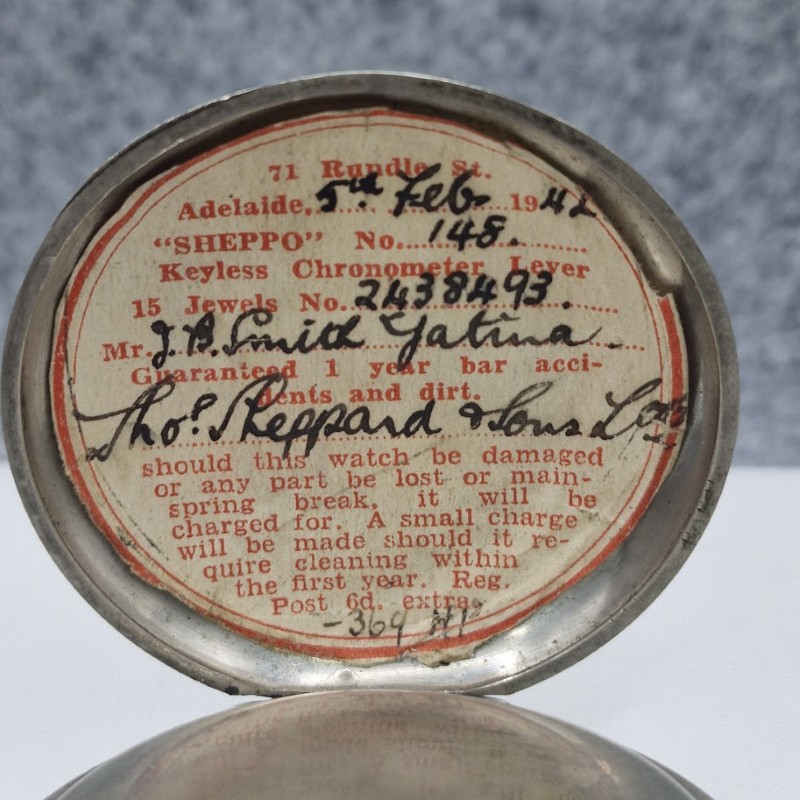 71 Rundle St.
Adelaide, 5th Feb. 1942
"SHEPPO" No. 148.
Keyless Chronometer Lever
15 Jewels No. 2438493.
Mr. J. B. Smith Yatina.
Guaranteed 1 year bar acci-
dents and dirt.
Thos. Sheppard & Sons Ltd
should this watch be damaged
or any part be lost or main-
spring break, it will be
charged for. A small charge
will be made should it re-
quire cleaning within
the first year. Reg.
Post 6d. extra.
-369